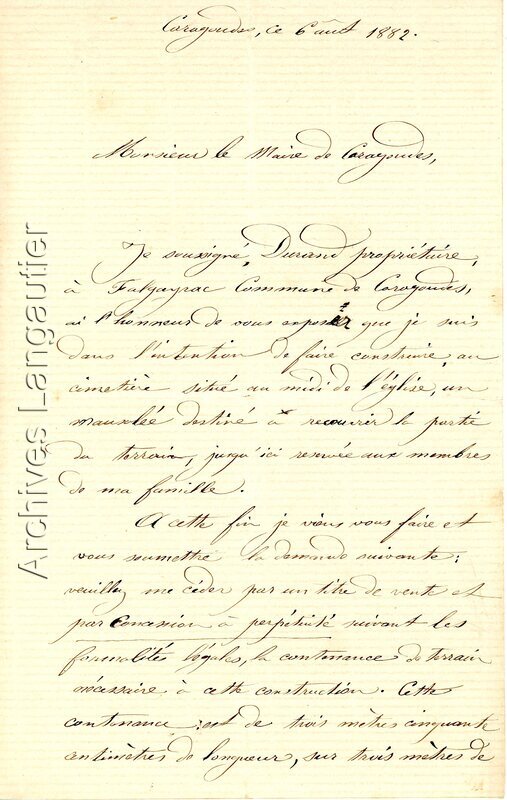 Caragoudes, ce 6 août 1882.
Monsieur le Maire de Caragoudes,
Je soussigné, Durand propriétaire,
à Falgayrac Commune de Caragoudes,
ai l'honneur de vous exposer que je suis
dans l'intention de faire construire, au
cimetière situé au midi de l'église, un
mausolée destiné à recouvrir la partie
du terrain, jusqu'ici reservée aux membres
de ma famille.
A cette fin je viens vous faire et
vous soumettre la demande suivante:
veuillez me céder par un titre de vente et
par Concession à perpétuité suivant les
formalités légales, la contenance de terrain
nécessaire à cette construction. Cette
contenance est de trois mètres cinquante
centimètres de longueur, sur trois mètres de
Archives Langautier